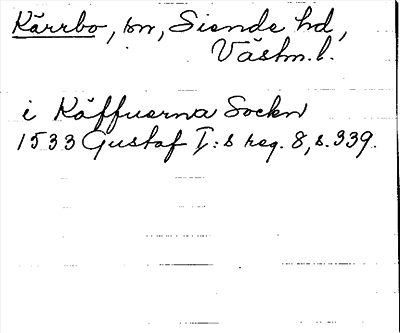 Kärrbo, sn, Siende hd,
Västm. l.
i Käffuerna Sockn
1533 Gustaf I:s reg. 8, s. 339.